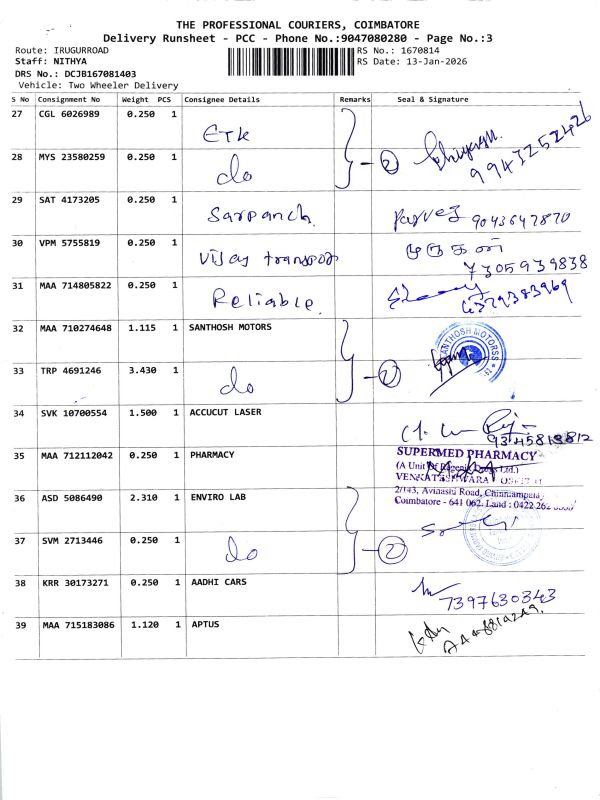 THE PROFESSIONAL COURIERS, COIMBATORE
Delivery Runsheet - PCC - Phone No.:9047080280 - Page No.:3
Route: IRUGURROAD RS No.: 1670814
Staff: NITHYA RS Date: 13-Jan-2026
DRS No.: DCJB167081403
Vehicle: Two Wheeler Delivery
S No Consignment No Weight PCS Consignee Details Remarks Seal & Signature
27 CGL 6026989 0.250 1 ETK
28 MYS 23580259 0.250 1 do 2 9943252426
29 SAT 4173205 0.250 1 Sarpanch. Parvez 9043647870
30 VPM 5755819 0.250 1 Vijay transport முருகன் 7305939838
31 MAA 714805822 0.250 1 Reliable. 6379383969
32 MAA 710274648 1.115 1 SANTHOSH MOTORS SANTHOSH MOTORSS
33 TRP 4691246 3.430 1 do 2
34 SVK 10700554 1.500 1 ACCUCUT LASER
35 MAA 712112042 0.250 1 PHARMACY SUPERMED PHARMACY
(A Unit Of Ltd.)
VENKATESHWARA
2/143, Avinashi Road, Chinniampalayam
Coimbatore - 641 062. Land : 0422 262
36 ASD 5086490 2.310 1 ENVIRO LAB
37 SVM 2713446 0.250 1 do 2
38 KRR 30173271 0.250 1 AADHI CARS 7397630343
39 MAA 715183086 1.120 1 APTUS